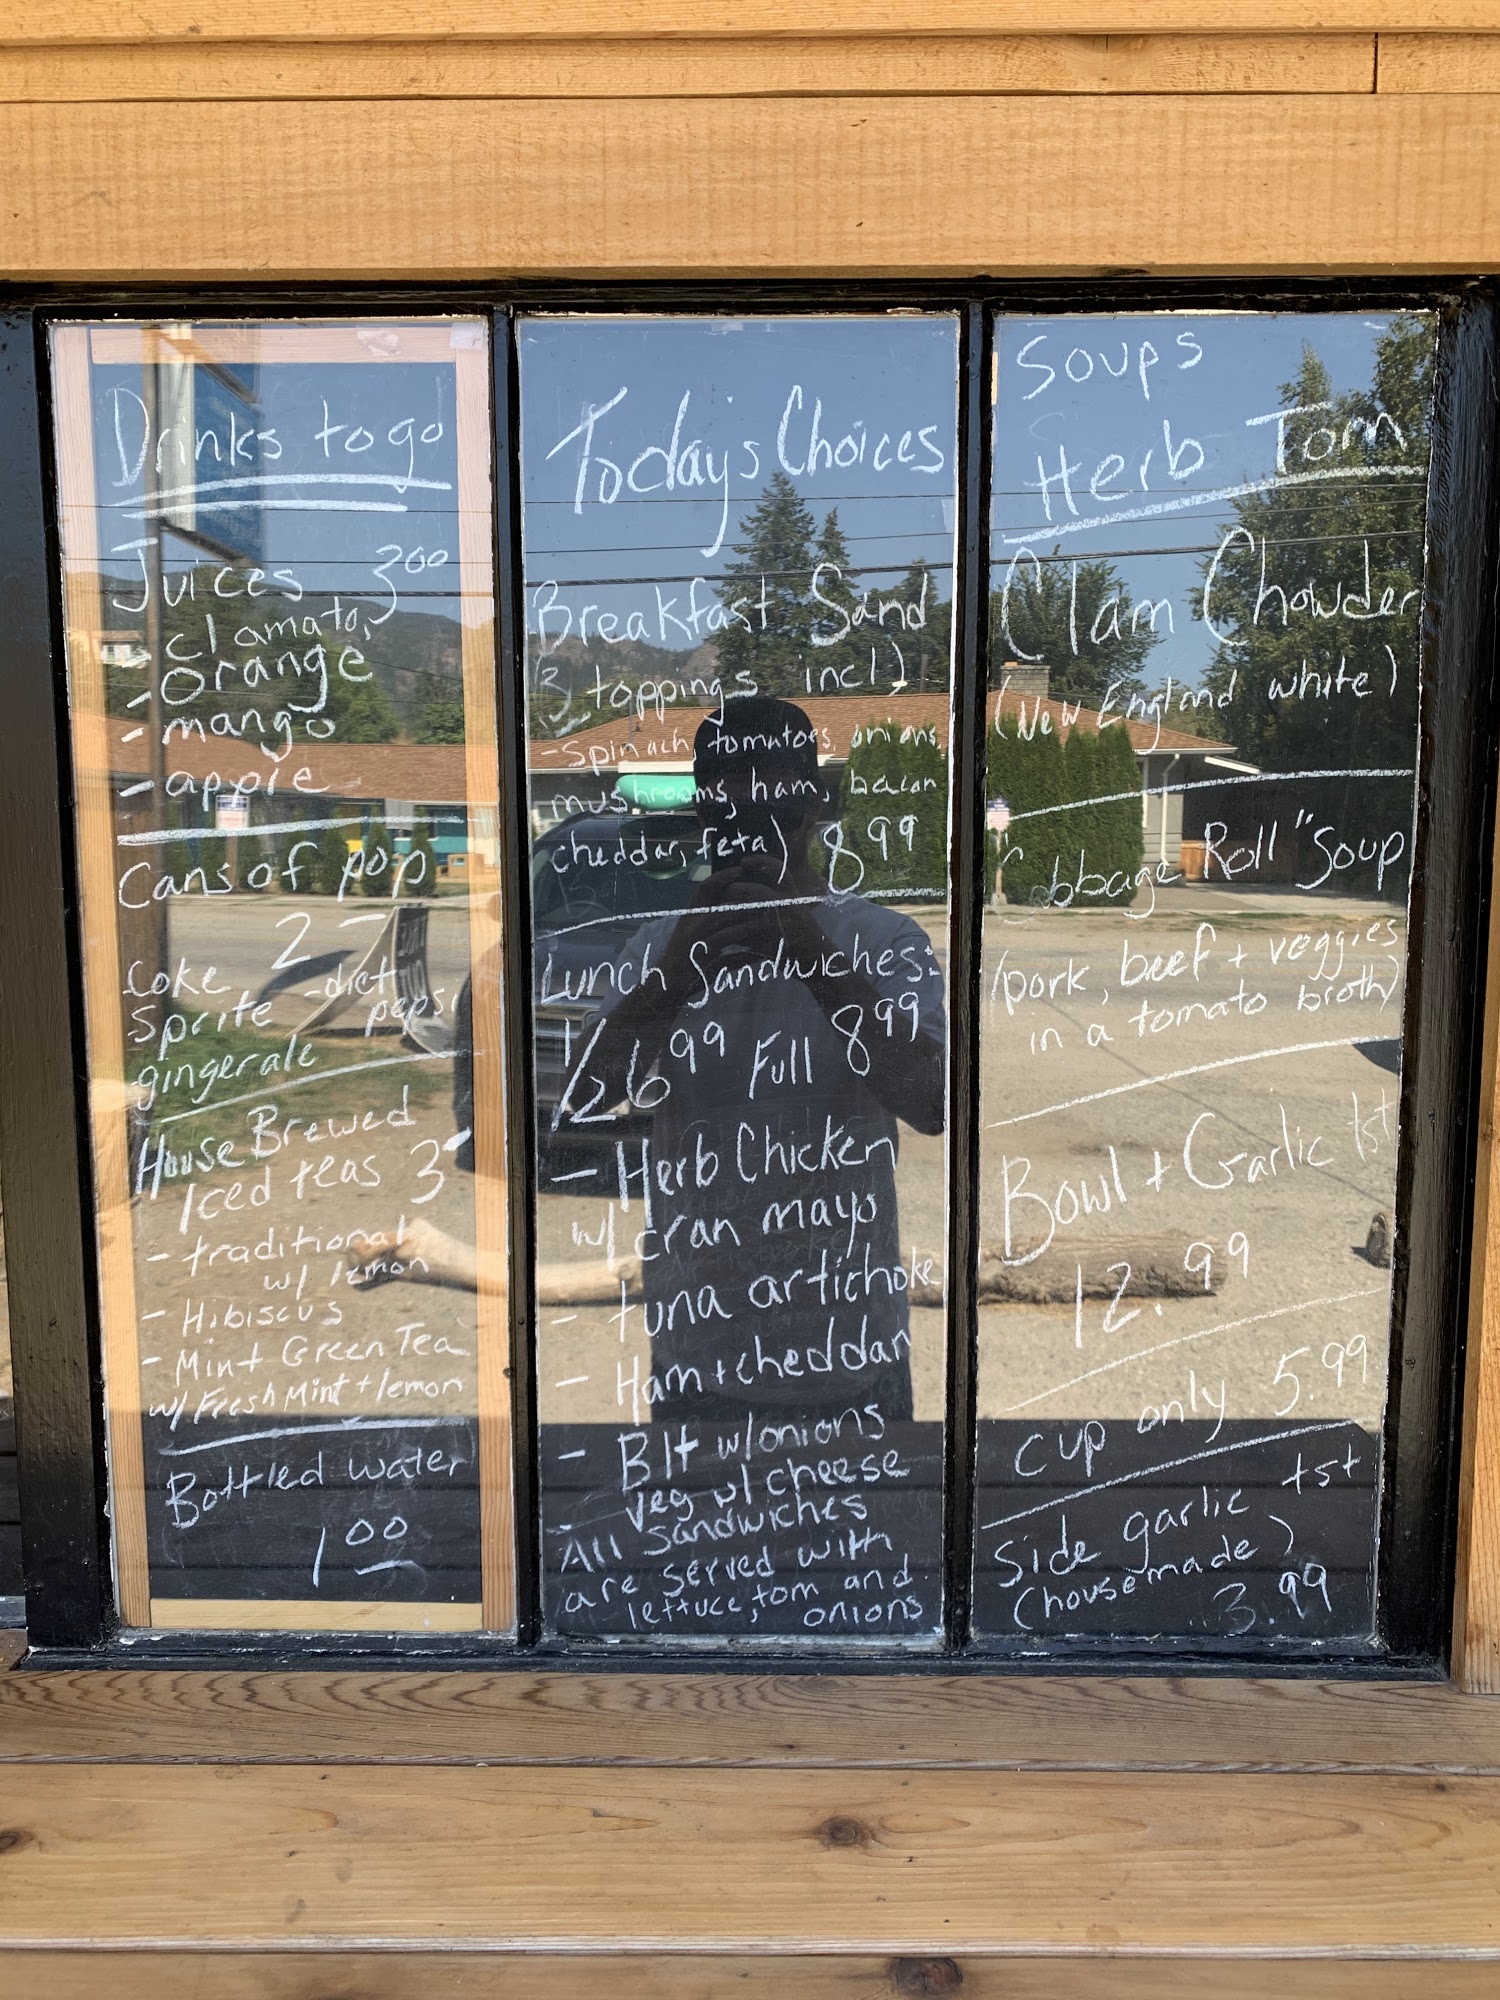 Drinks to go
Juices 3.00
- clamato,
- orange
- mango
- apple
Cans of pop
2 -
- Coke - diet
- Sprite pepsi
- gingerale
House Brewed
Iced teas 3 -
- traditional
w/ lemon
- Hibiscus
- Mint Green Tea
w/ Fresh Mint + lemon
Bottled water
1.00
Today's Choices
Breakfast Sand
(3 toppings incl)
- spinach, tomatoes, onions,
mushrooms, ham, bacon
cheddar, feta) 8.99
Lunch Sandwiches:
1/2 6.99 Full 8.99
- Herb Chicken
w/ cran mayo
- tuna artichoke
- Ham + cheddar
- Blt w/onions
- veg w/ cheese
All sandwiches
are served with
lettuce, tom and
onions
Soups
Herb Tom
Clam Chowder
(New England white)
Cabbage Roll "Soup
(pork, beef + veggies
in a tomato broth)
Bowl + Garlic tst
12.99
cup only 5.99
Side garlic tst
(housemade)
3.99